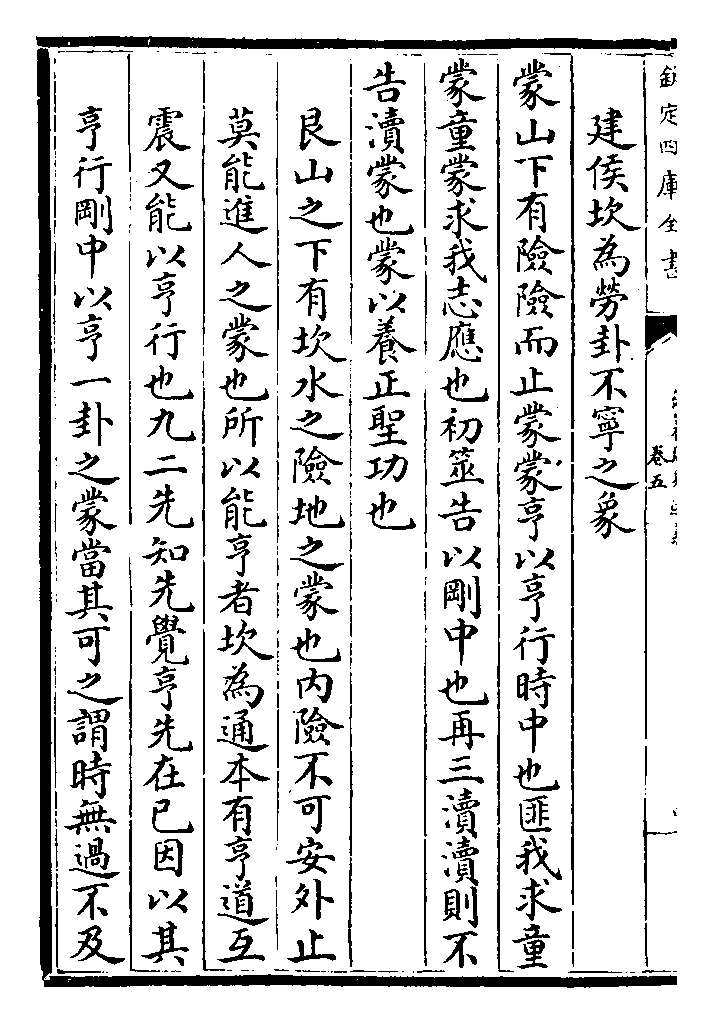 欽定四庫全書
卷五
建侯坎為勞卦不寧之象
蒙山下有險險而止蒙蒙亨以亨行時中也匪我求童
蒙童蒙求我志應也初筮告以剛中也再三瀆瀆則不
告瀆蒙也蒙以養正聖功也
艮山之下有坎水之險地之蒙也内險不可安外止
莫能進人之蒙也所以能亨者坎為通本有亨道互
震又能以亨行也九二先知先覺亨先在已因以其
亨行剛中以亨一卦之蒙當其可之謂時無過不及